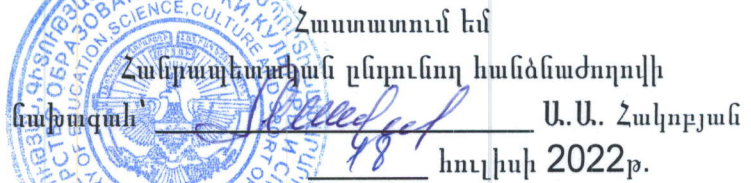 Հաստատում եմ
Հանրապետական ընդունող հանձնաժողովի
նախագահ՝ Ա.Ա. Հակոբյան
18 հուլիսի 2022թ.
EDUCATION, SCIENCE, CULTURE AND